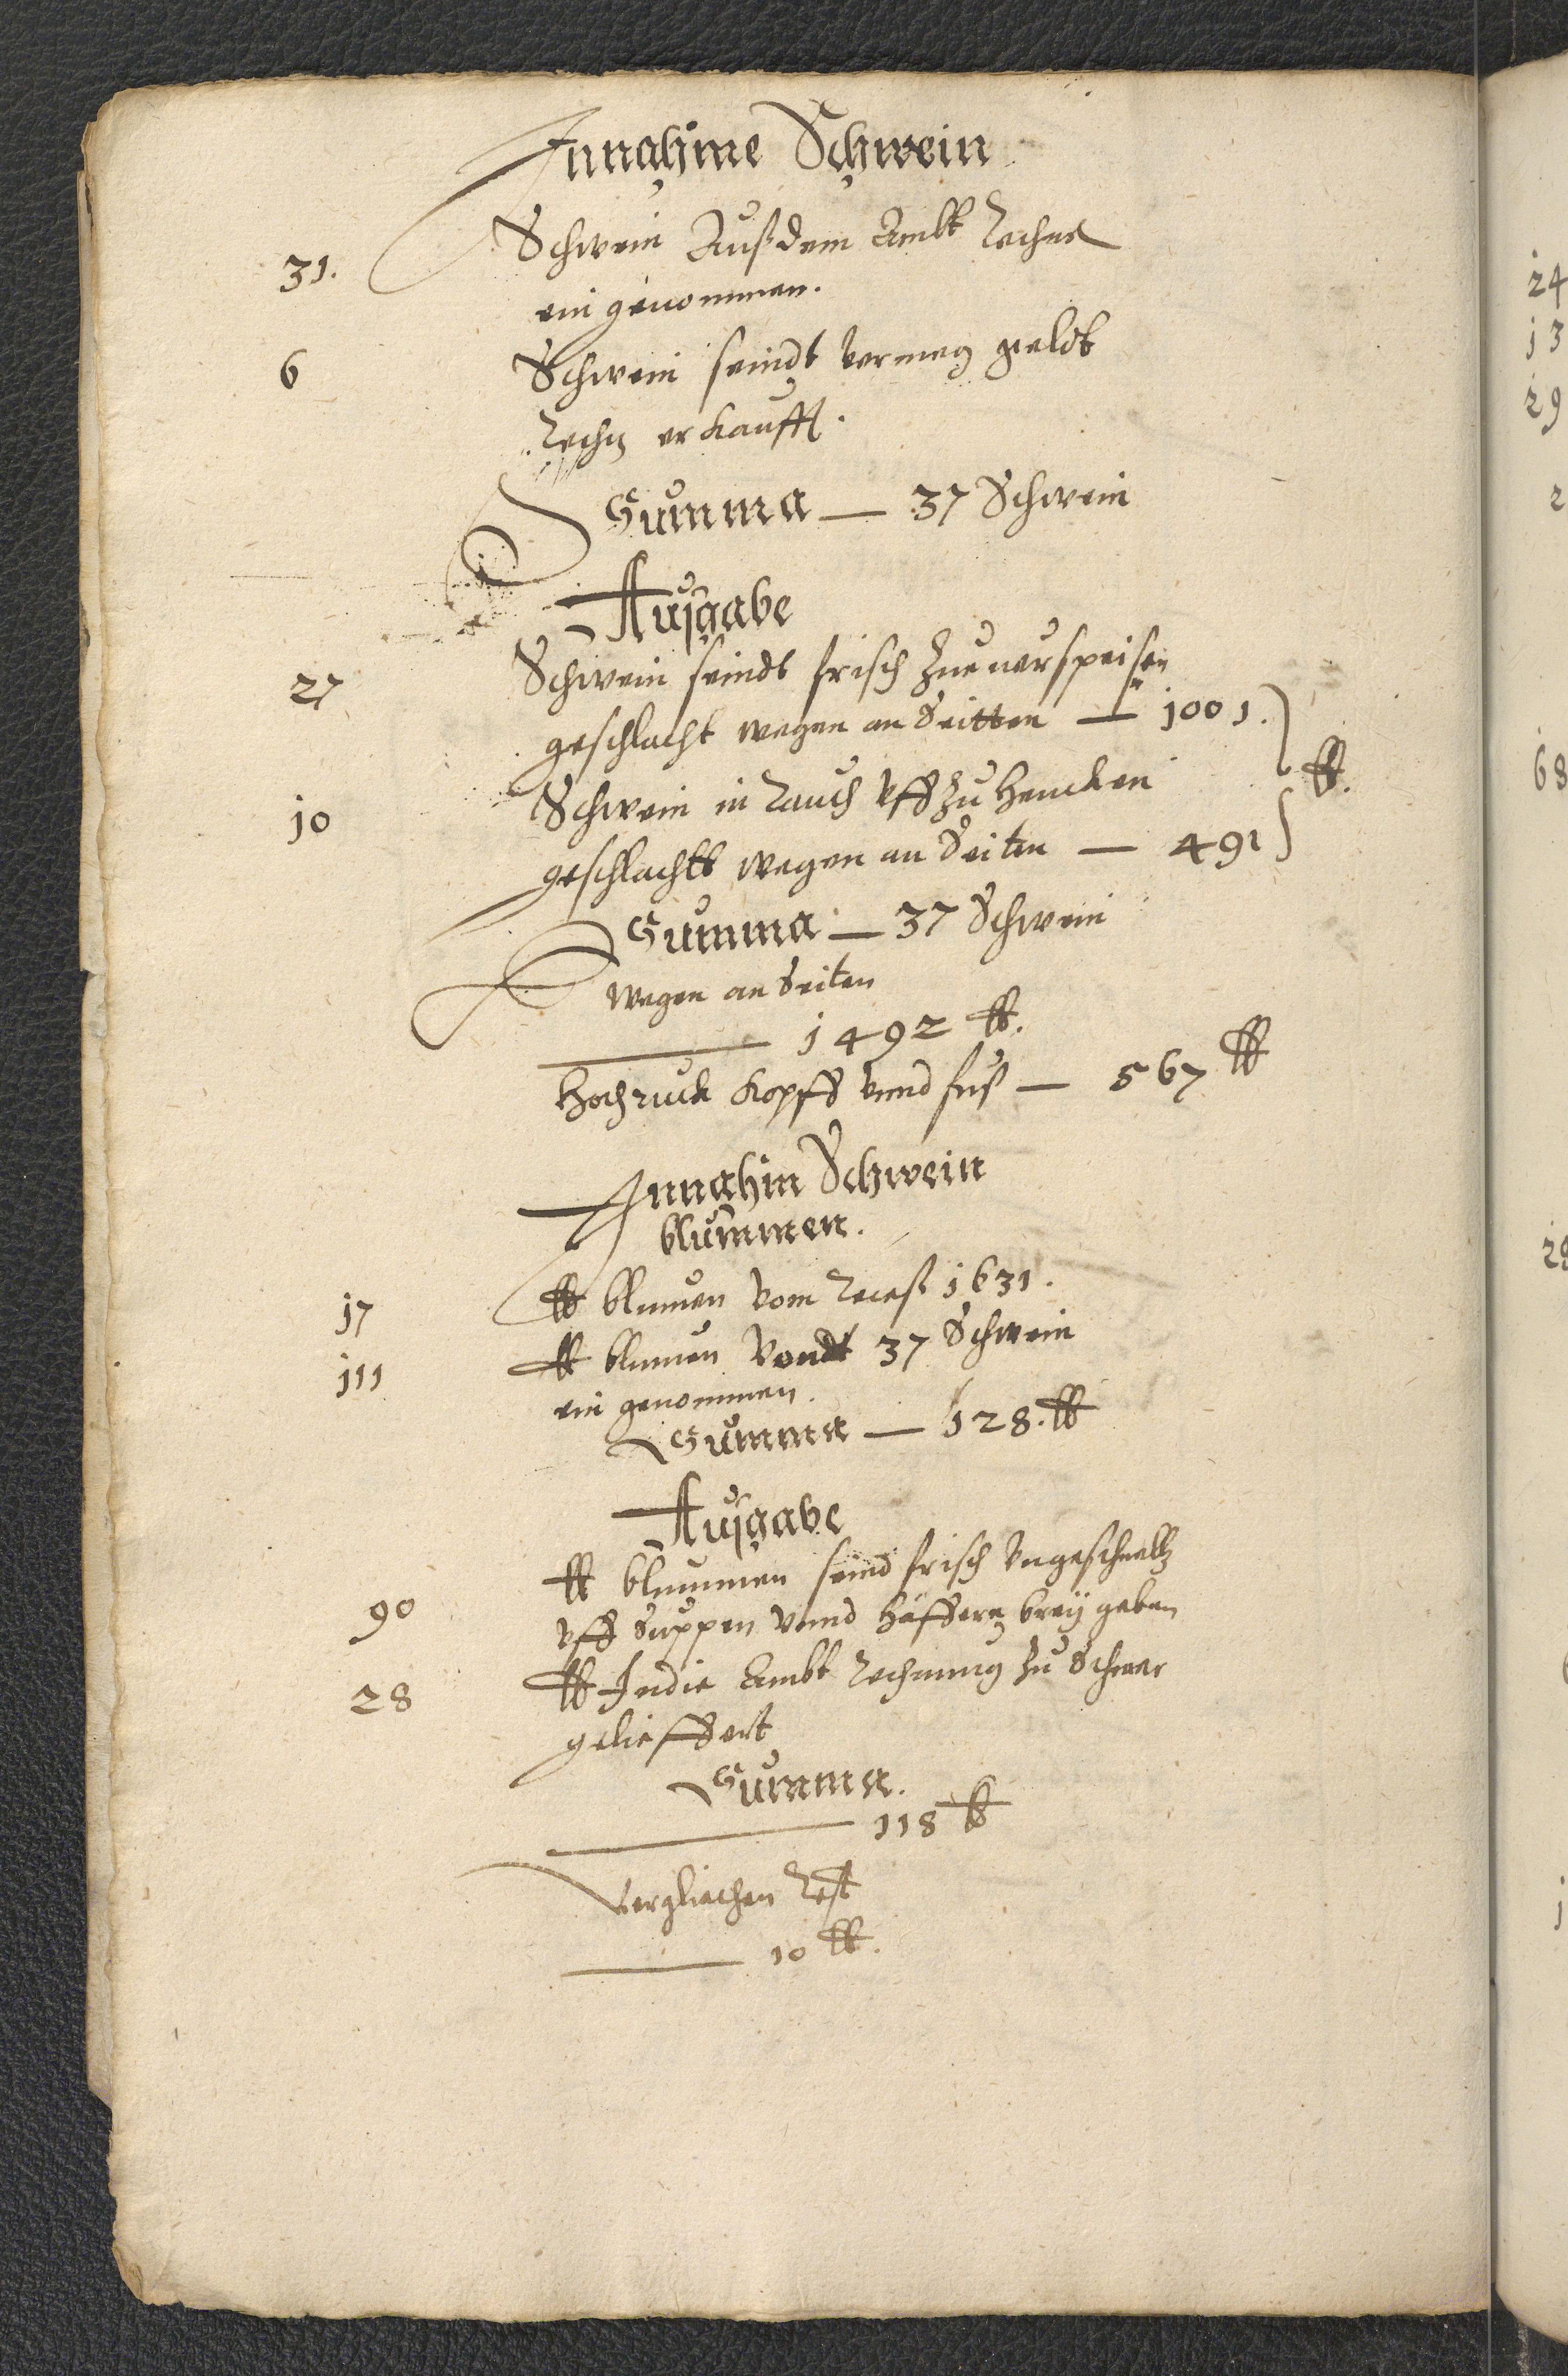 Innahme Schwein
31. Schwein Auß dem Ambt Rechnen
ein genommen.
6 Schwein seindt vermeg geldt
Rechn erkaufft.
Summa — 37 Schwein
Ausgabe
27 Schwein seindt frisch Zue verspeisen
geschlacht wegen an Seitten — 1001.
10 Schwein in Rauch vff Zu Hencken ℔.
geschlacht wegen an Seiten — 491
Summa — 37 Schwein
wegen an Seiten
1492 ℔.
Hochruck Kopff vnnd fuß — 567 ℔
Innahm Schwein
blummen.
17 ℔ blumen Vom Recess 1631.
111 ℔ blumen Von 37 Schwein
ein genommen.
Summa — 128. ℔
Ausgabe
90 ℔ blummen seind frisch Vngeschmeltz
vff Suppen vnnd Häffern brey geben
28 ℔ In die Ambt Rechnung Zu Schmer
gelieffert
Summa.
118 ℔
Vergliechen Rest
10 ℔.
24
13
29
2
68
28
1